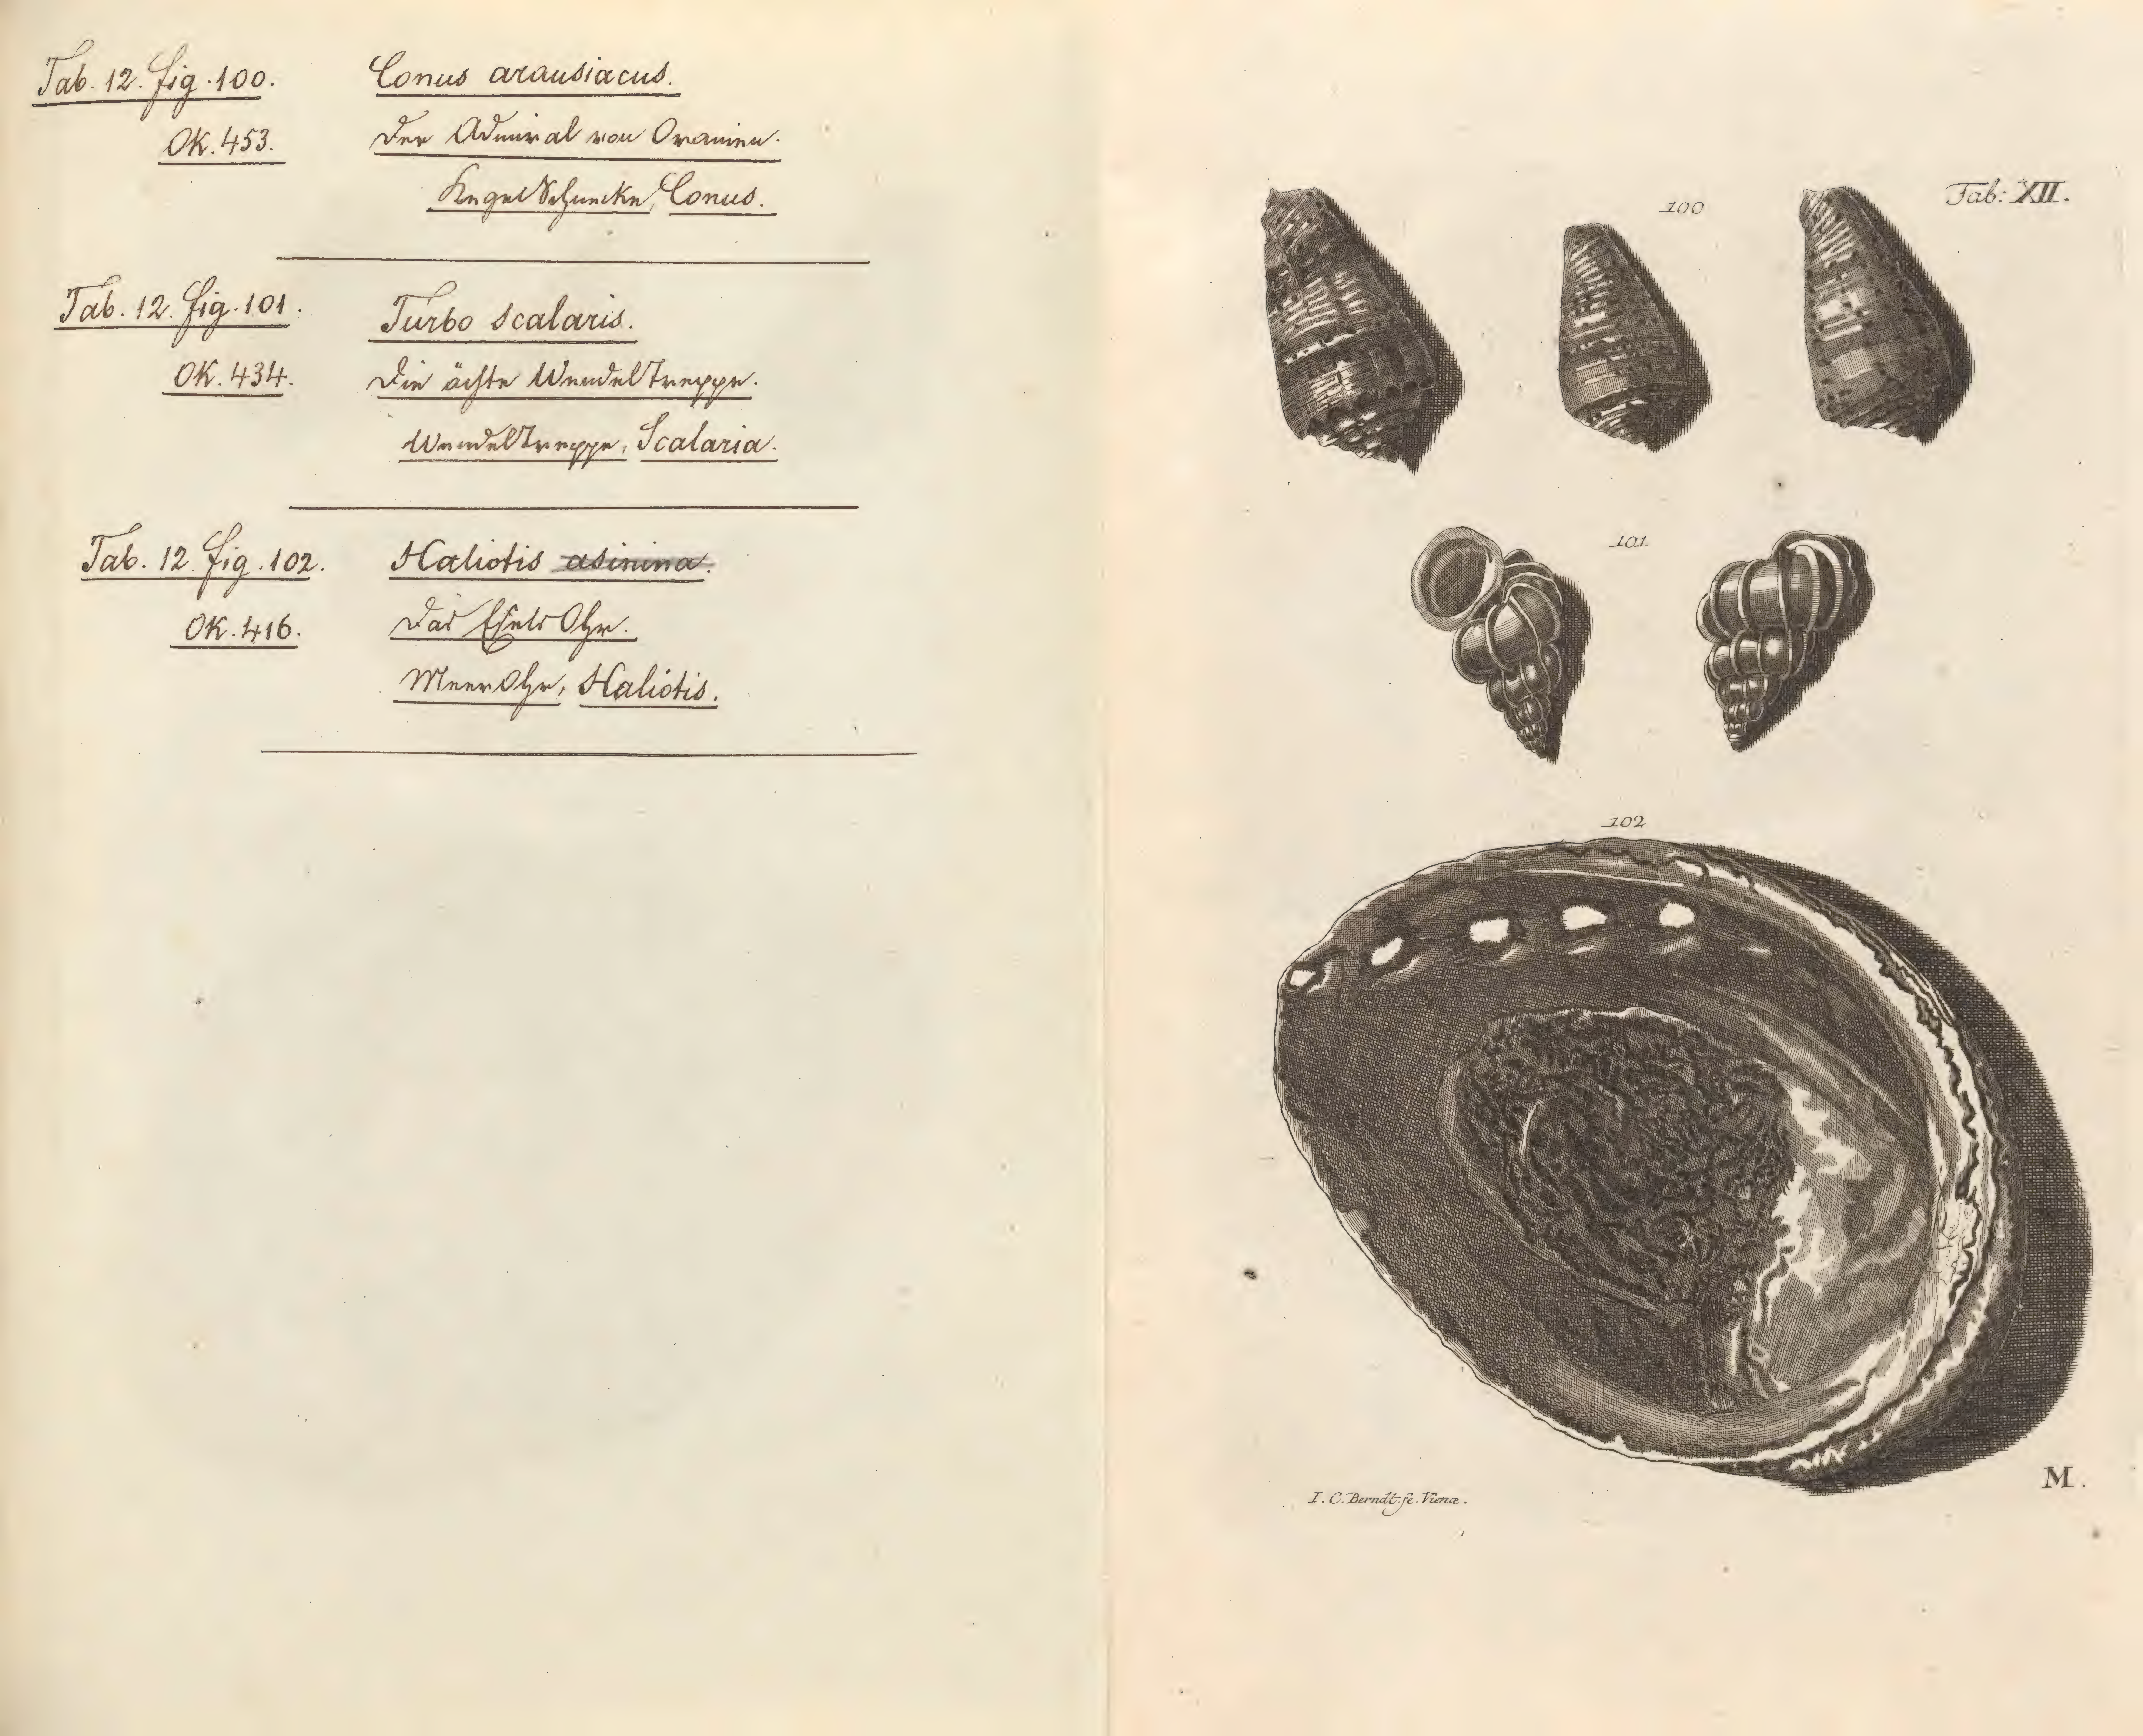 Tab. 12. fig. 100. Conus arausiacus.
OK. 453. Der Admiral von Oranien.
KegelSchnecke, Conus.
Tab. 12. fig. 101. Turbo scalaris.
OK. 434. Die ächte WendelTreppe.
WendelTreppe, Scalaria.
Tab. 12. fig. 102. Haliotis asinina.
OK. 416. Das EselsOhr.
MeerOhr, Haliotis.
Tab: XII.
100
101
102
M.
I. C. Berndt. fe. Vienæ.